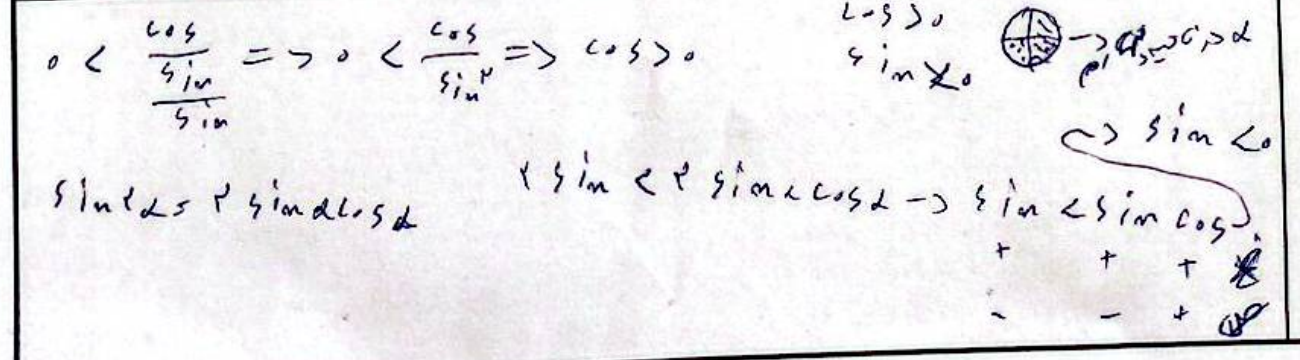 ۰ < cos / (sin / sin) => ۰ < cos / sin۲ => cos > ۰
cos > ۰
sin < ۰
sin ۲α = ۲ sin α cos α
۲ sin < ۲ sin α cos α -> sin < sin cos
-> sin < ۰
+ + +
- - +